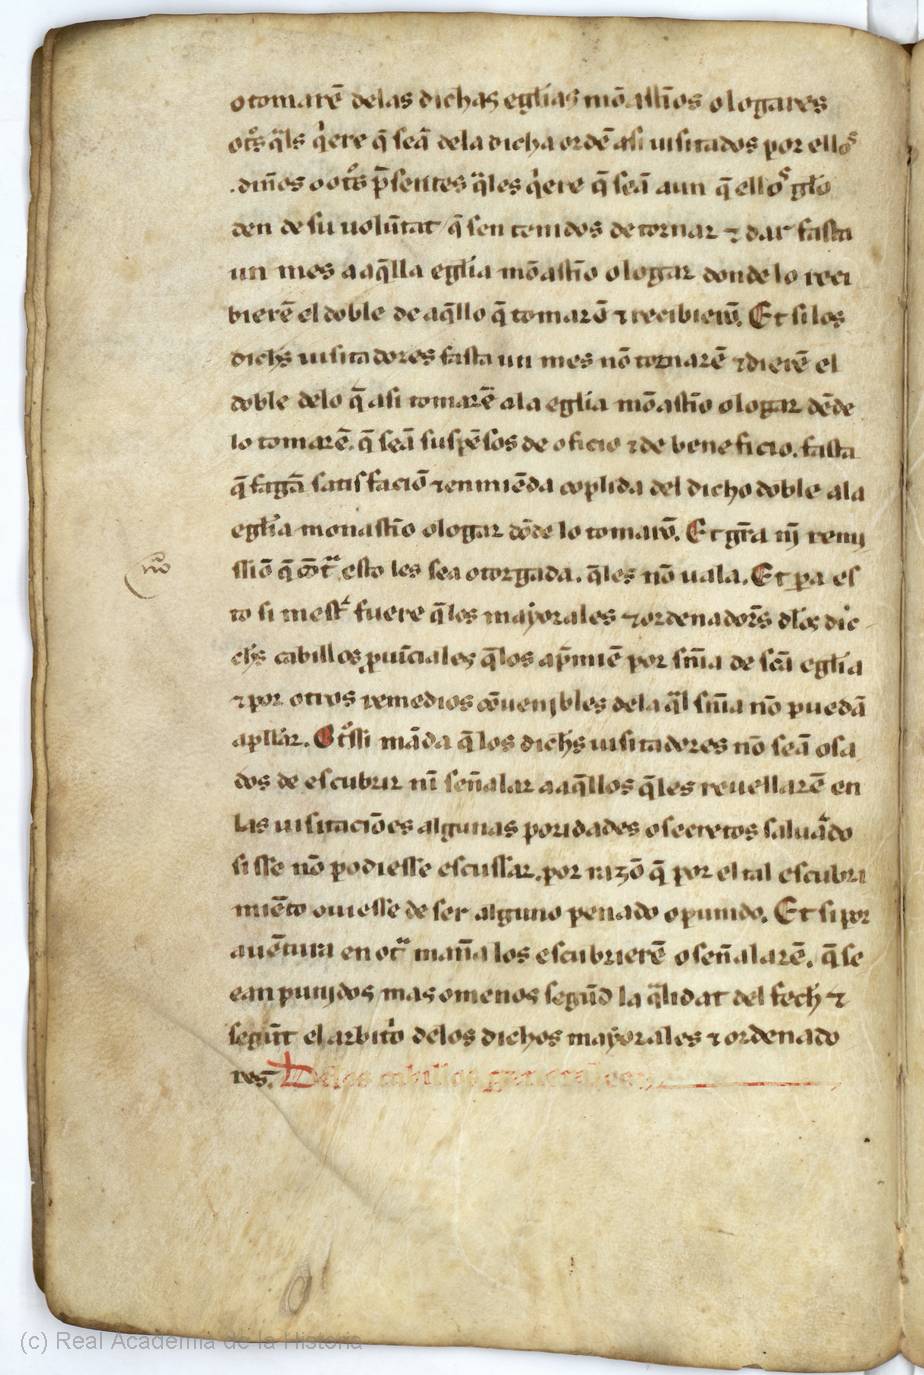 o tomarẽ delas dichas eglías mõastĩos o logares
ot̃s q̃ls q̃ere q̃ seã dela dicha ordẽ asi uisitados por ellos
.din̄os o ot̃s p̃sentes q̃les q̃ere q̃ seã aun q̃ ellos glo
den de su uolũtat q̃ sen tenidos de tornar ⁊ dar fasta
un mes a aq̃lla eglía mõastĩo o logar donde lo reci
bierẽ el doble de aq̃llo q̃ tomarõ ⁊ recibierõ. Et si los
dichs̃ uisitadores fasta un mes nõ tornarẽ ⁊ dierẽ el
doble delo q̃ asi tomarẽ ala eglía mõastĩo o logar dẽde
lo tomarẽ. q̃ seã suspẽsos de oficio ⁊ de beneficio. fasta
q̃ fagã satisfaciõ ⁊ enmiẽda cõplida del dicho doble ala
eglía monastĩo o logar dõde lo tomarõ. Et gr̃a nj̃ remj
ssiõ q̃ cõt̃ esto les sea otorgada. q̃les nõ uala. Et pa es
to si mest̃ fuere q̃ los mayorales ⁊ ordenadors̃ dlos dic
chs̃ cabillos puĩciales q̃ los ap̃miẽ por sñia de scã eglía
⁊ por otros remedios cõuenjbles dela q̃l sñia nõ puedã
apllar̃. Ot̃ssi mãda q̃ los dichs̃ uisitadores nõ seã osa
dos de escubrir nĩ señalar a aq̃llos q̃les reuellarẽ en
las uisitaciões algunas poridades o secretos saluãdo
si sse nõ podiesse escussar. por razõ q̃ por el tal escubri
miẽto ouiesse de ser alguno penado o punido. Et si por
auẽtura en ot̃ mañia los escubrierẽ o señalarẽ. q̃ se
ean punjdos mas o menos segũd la q̃lidat del fech̃ ⁊
segũt el arbit̃o delos dichos mayorales ⁊ ordenado
res. Delos cabillos generales
no
(c) Real Academia de la Historia